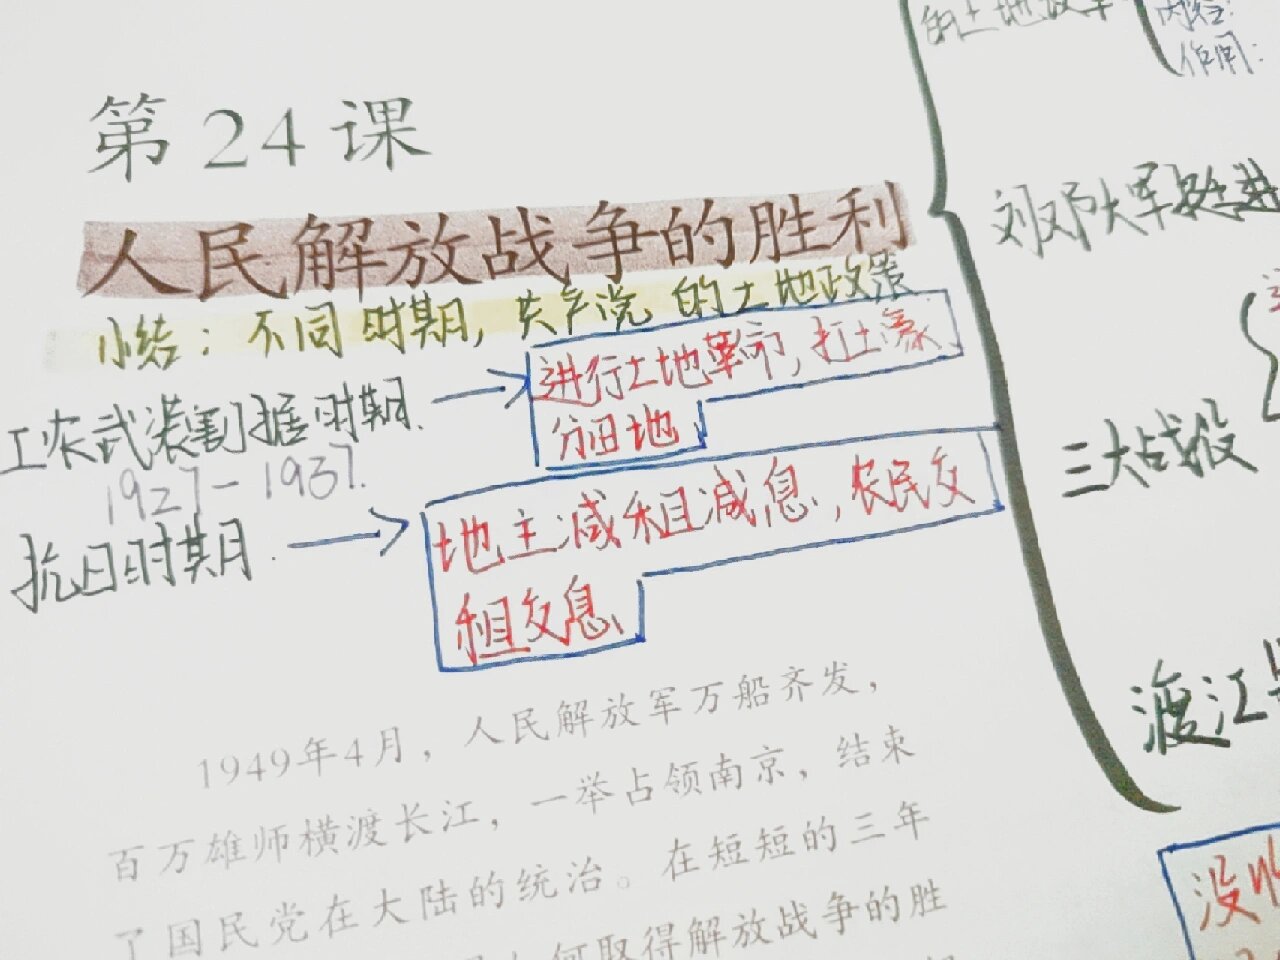 第24课
人民解放战争的胜利
小结：不同时期，共产党的土地政策
工农武装割据时期
1927-1937.
进行土地革命，打土豪、
分田地
抗日时期
地主减租减息，农民交
租交息
1949年4月，人民解放军万船齐发，
百万雄师横渡长江，一举占领南京，结束
了国民党在大陆的统治。在短短的三年
何取得解放战争的胜
的土地改革
内容：
作用：
刘邓大军挺进
三大战役
渡江
没收